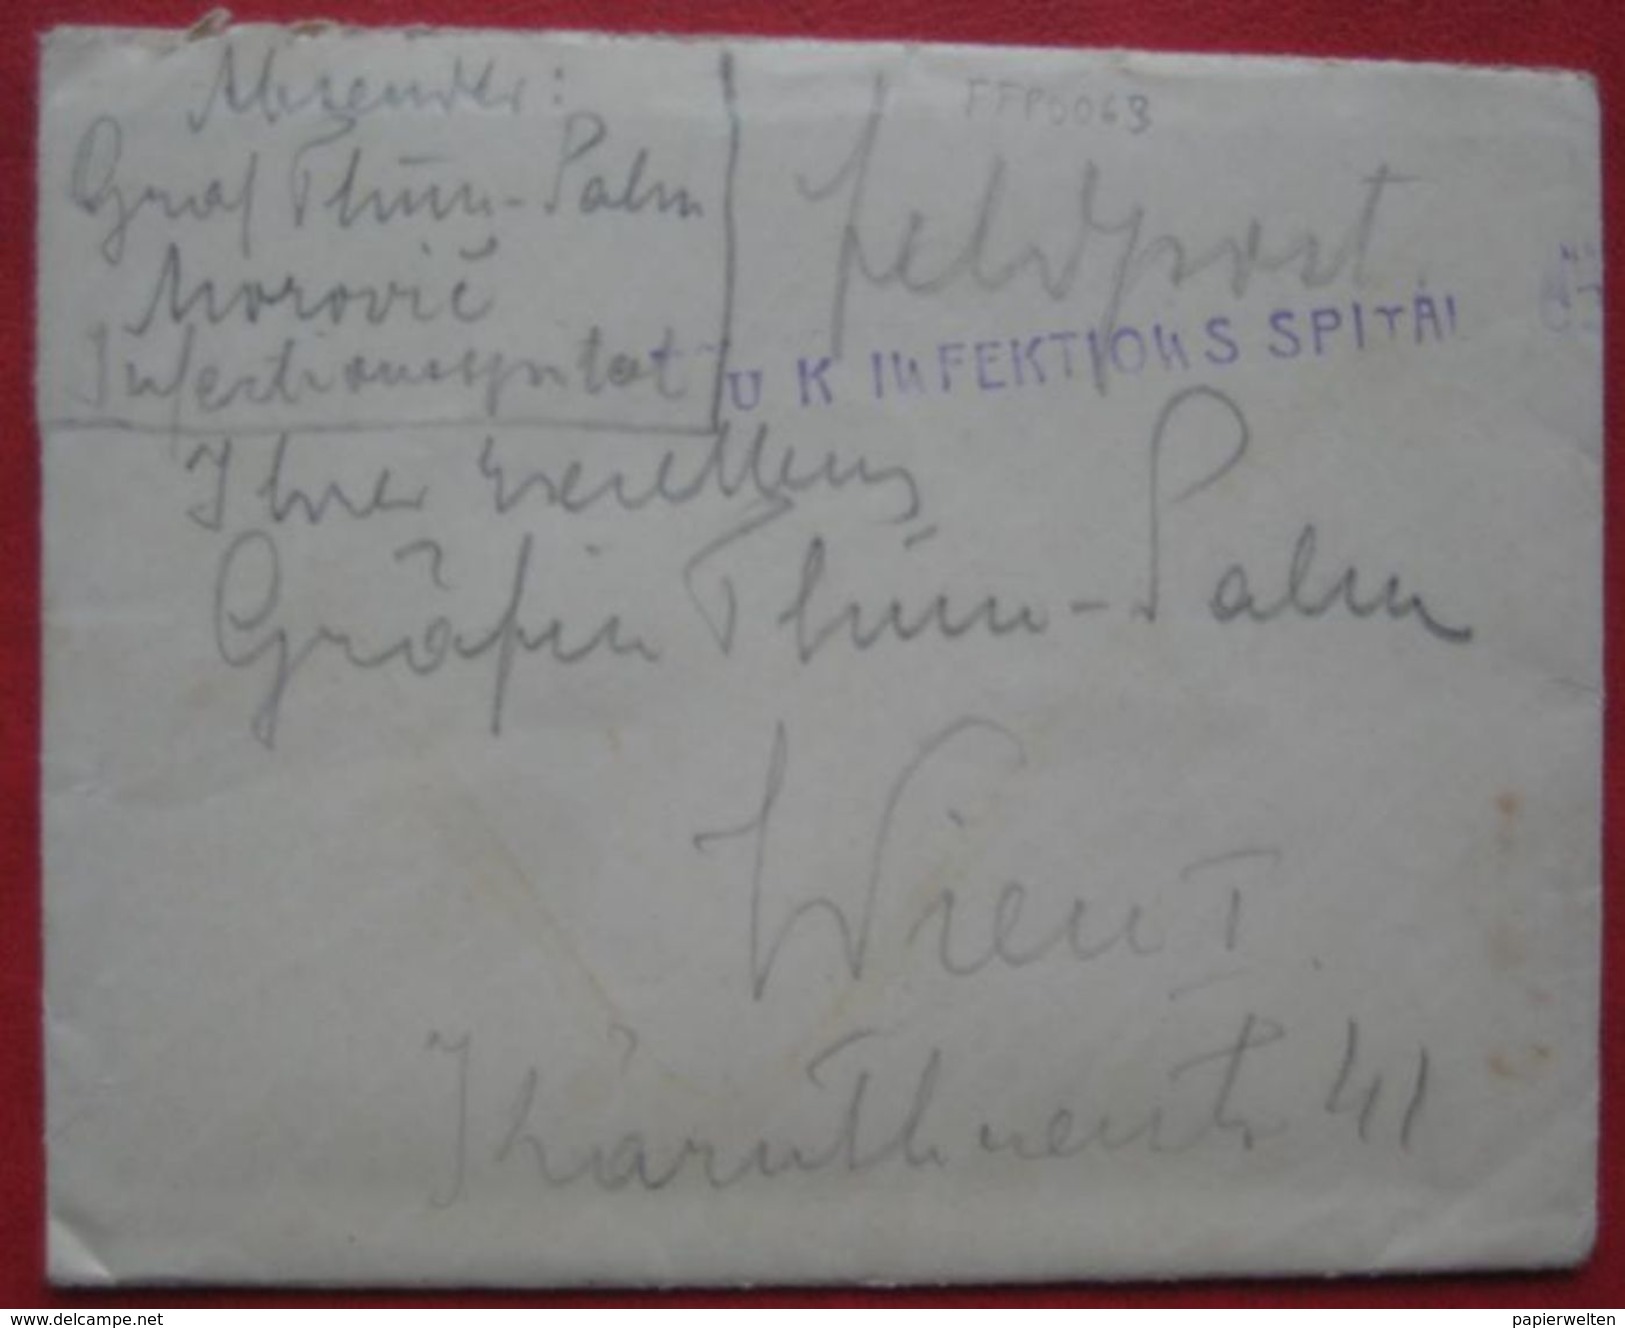 Absender:
Graf Thun-Salm
Morović
Infectionsspital
FFP0063
Feldpost
U K INFEKTIONS SPITAL
Ihrer Exzellenz
Gräfin Thun-Salm
Wien I.
Kärnthnerstr 41
papierwelten